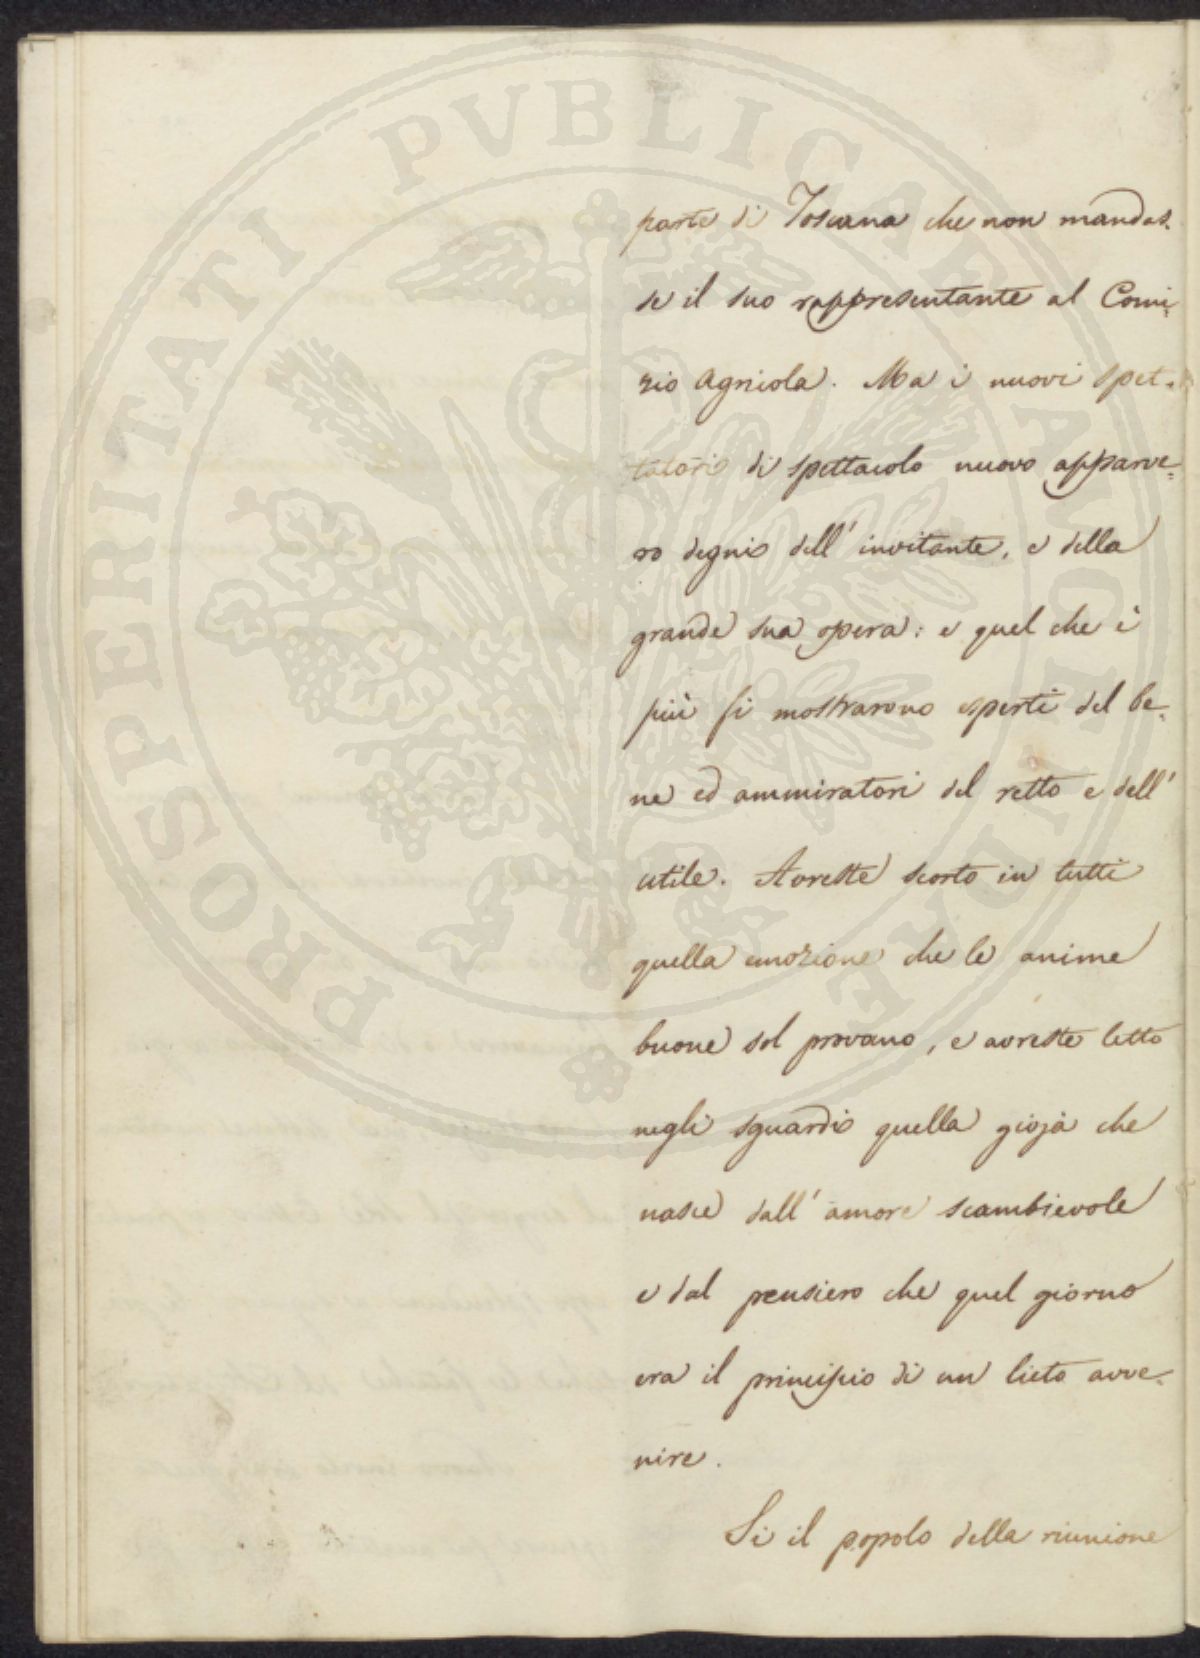 PROSPERITATI PVBLICAE AVGENDAE
parte di Toscana che non mandas-
se il suo rappresentante al Comi-
zio Agricola. Ma i nuovi spet-
tatori di spettacolo nuovo apparve-
ro degni dell' invitante, e della
grande sua opera: e quel che è
più si mostrarono esperti del be-
ne ed ammiratori del retto e dell'
utile. Avreste scorto in tutti
quella emozione che le anime
buone sol provano, e avreste letto
negli sguardi quella gioja che
nasce dall' amore scambievole
e dal pensiero che quel giorno
era il principio di un lieto avve-
nire.
Si il popolo della riunione